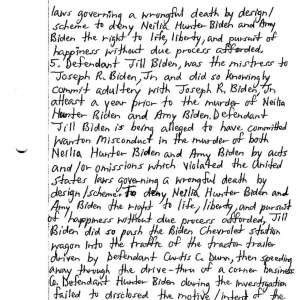 laws governing a wrongful death by design/
scheme to deny Neilia Hunter Biden and Amy
Biden the right to life, liberty, and pursuit of
happiness without due process afforded.
5. Defendant Jill Biden, was the mistress to
Joseph R. Biden, Jr. and did so knowingly
commit adultery with Joseph R. Biden, Jr.
atleast a year prior to the murder of Neilia
Hunter Biden and Amy Biden. Defendant
Jill Biden is being alleged to have committed
Wanton Misconduct in the murder of both
Neilia Hunter Biden and Amy Biden by acts
and/or omissions which violated the United
States laws governing a wrongful death by
design/scheme. To deny Neilia, Hunter Biden and
Amy Biden the right to life, liberty, and pursuit
of happiness without due process afforded, Jill
Biden did so push the Biden Chevrolet station
wagon into the traffic of the tractor trailer
driven by Defendant Curtis C. Dunn, then speeding
away through the drive-thru of a corner business
6. Defendant Hunter Biden during the investigation
failed to disclosed the motive/intent of the